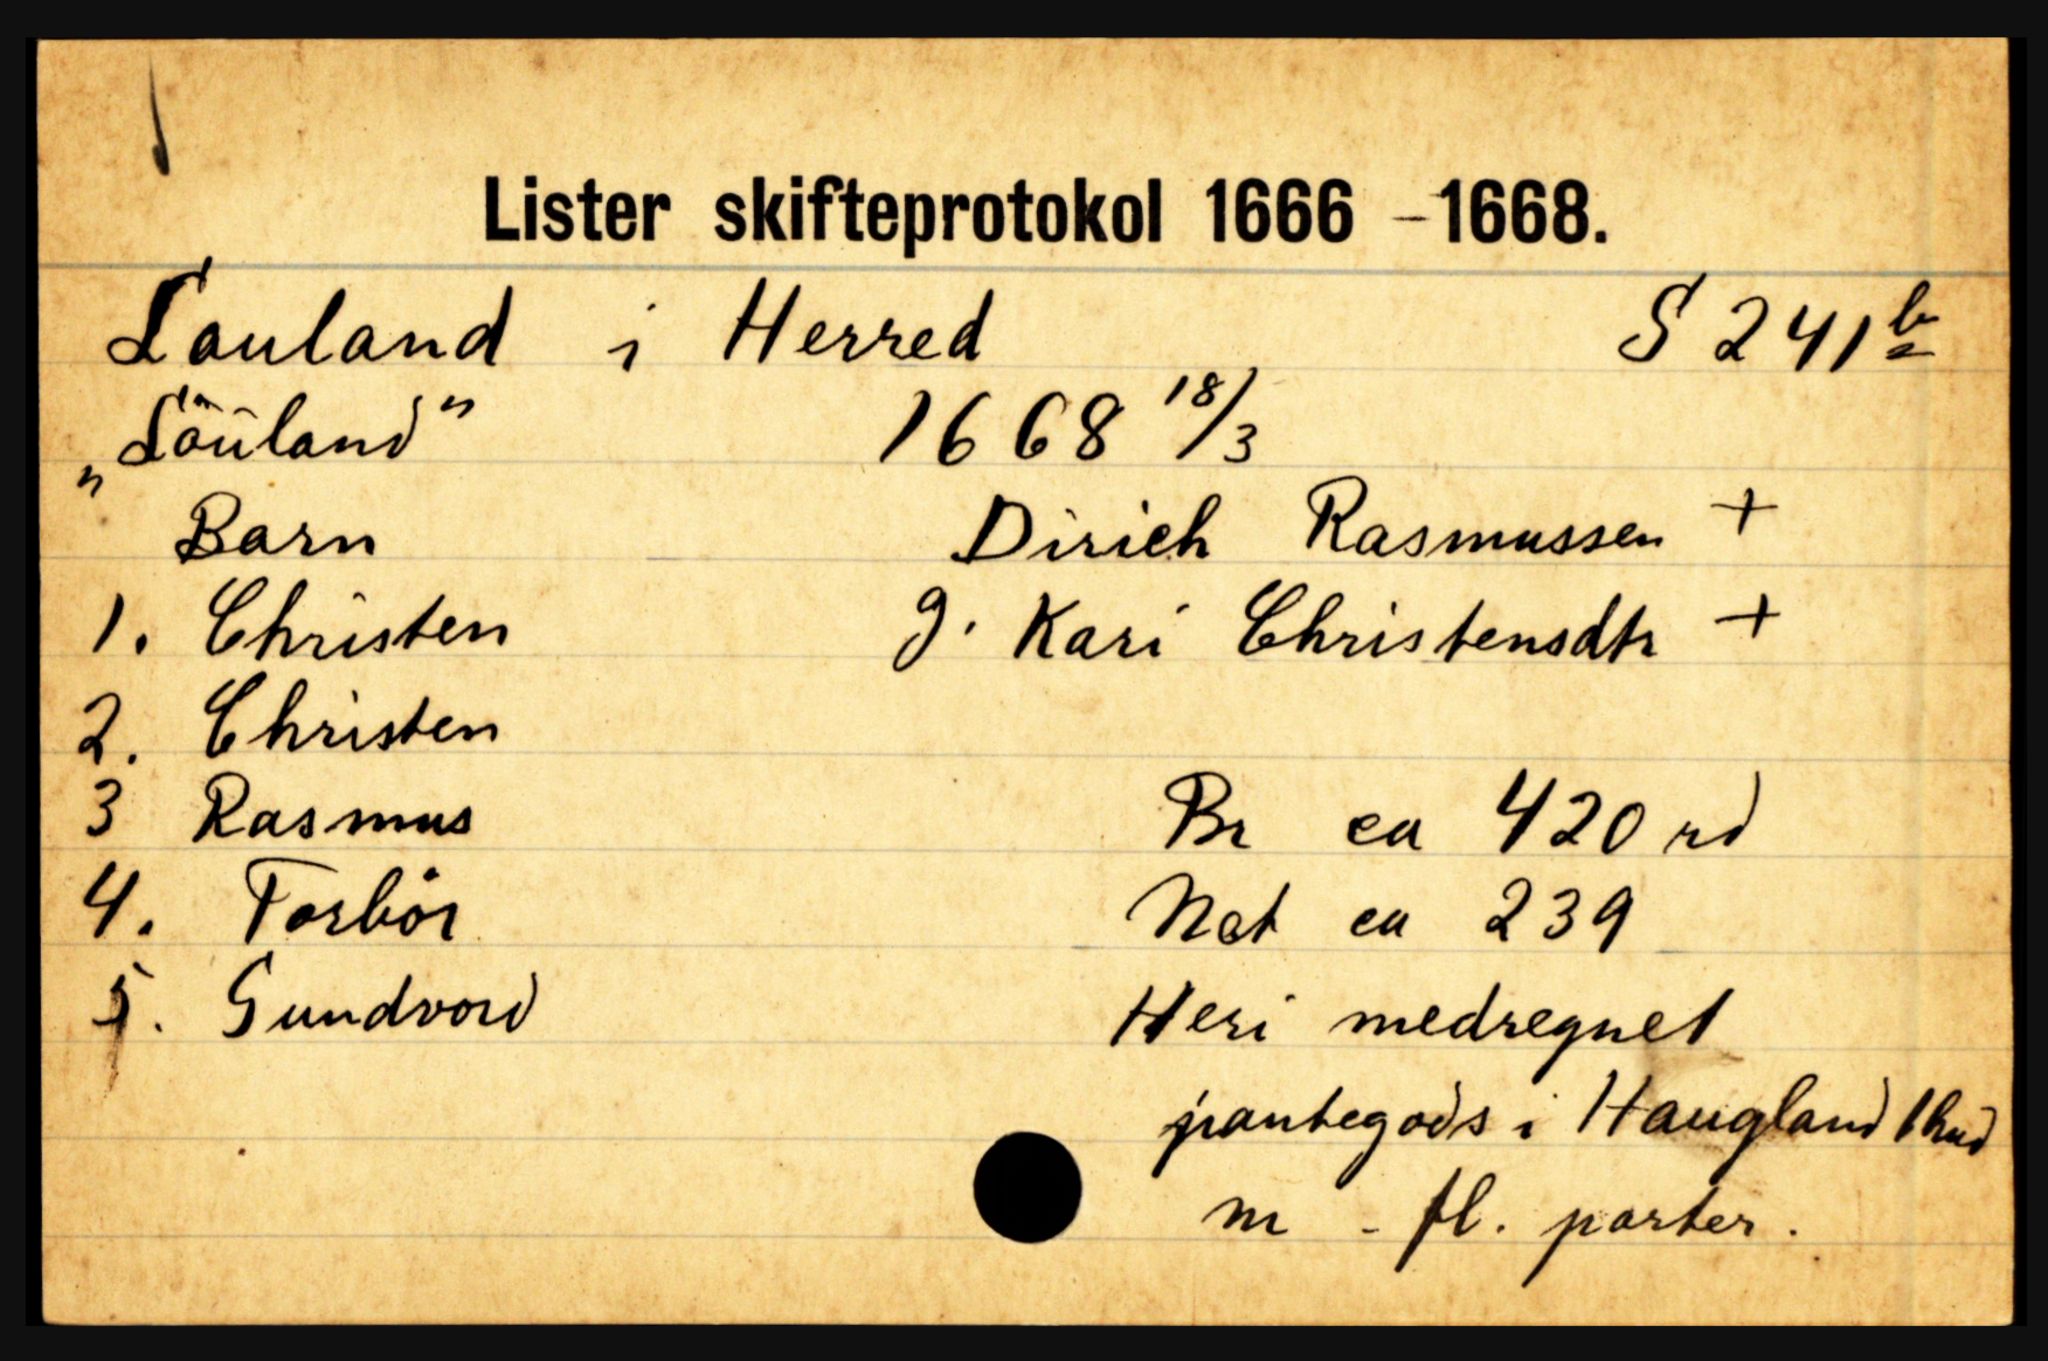 Lister skifteprotokol 1666 - 1668.
Lauland i Herred S 241 b
„Löuland" 1668 18/3
Barn Dirich Rasmussen +
1. Christen g. Kari Christensdtr +
2. Christen
3 Rasmus Br ca 420 rd
4. Torbör Net ca 239
5. Gundvord Heri medregnet
pantegods i Haugland 1 hud
m - fl. parter.